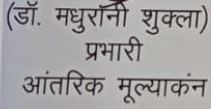 (डॉ. मधुरानी शुक्ला)
प्रभारी
आंतरिक मूल्याकंन